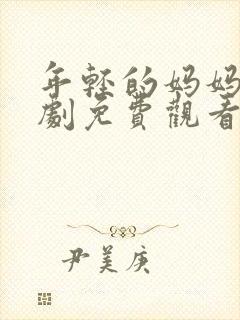 年轻的妈妈
劇免費觀看
尹美庚